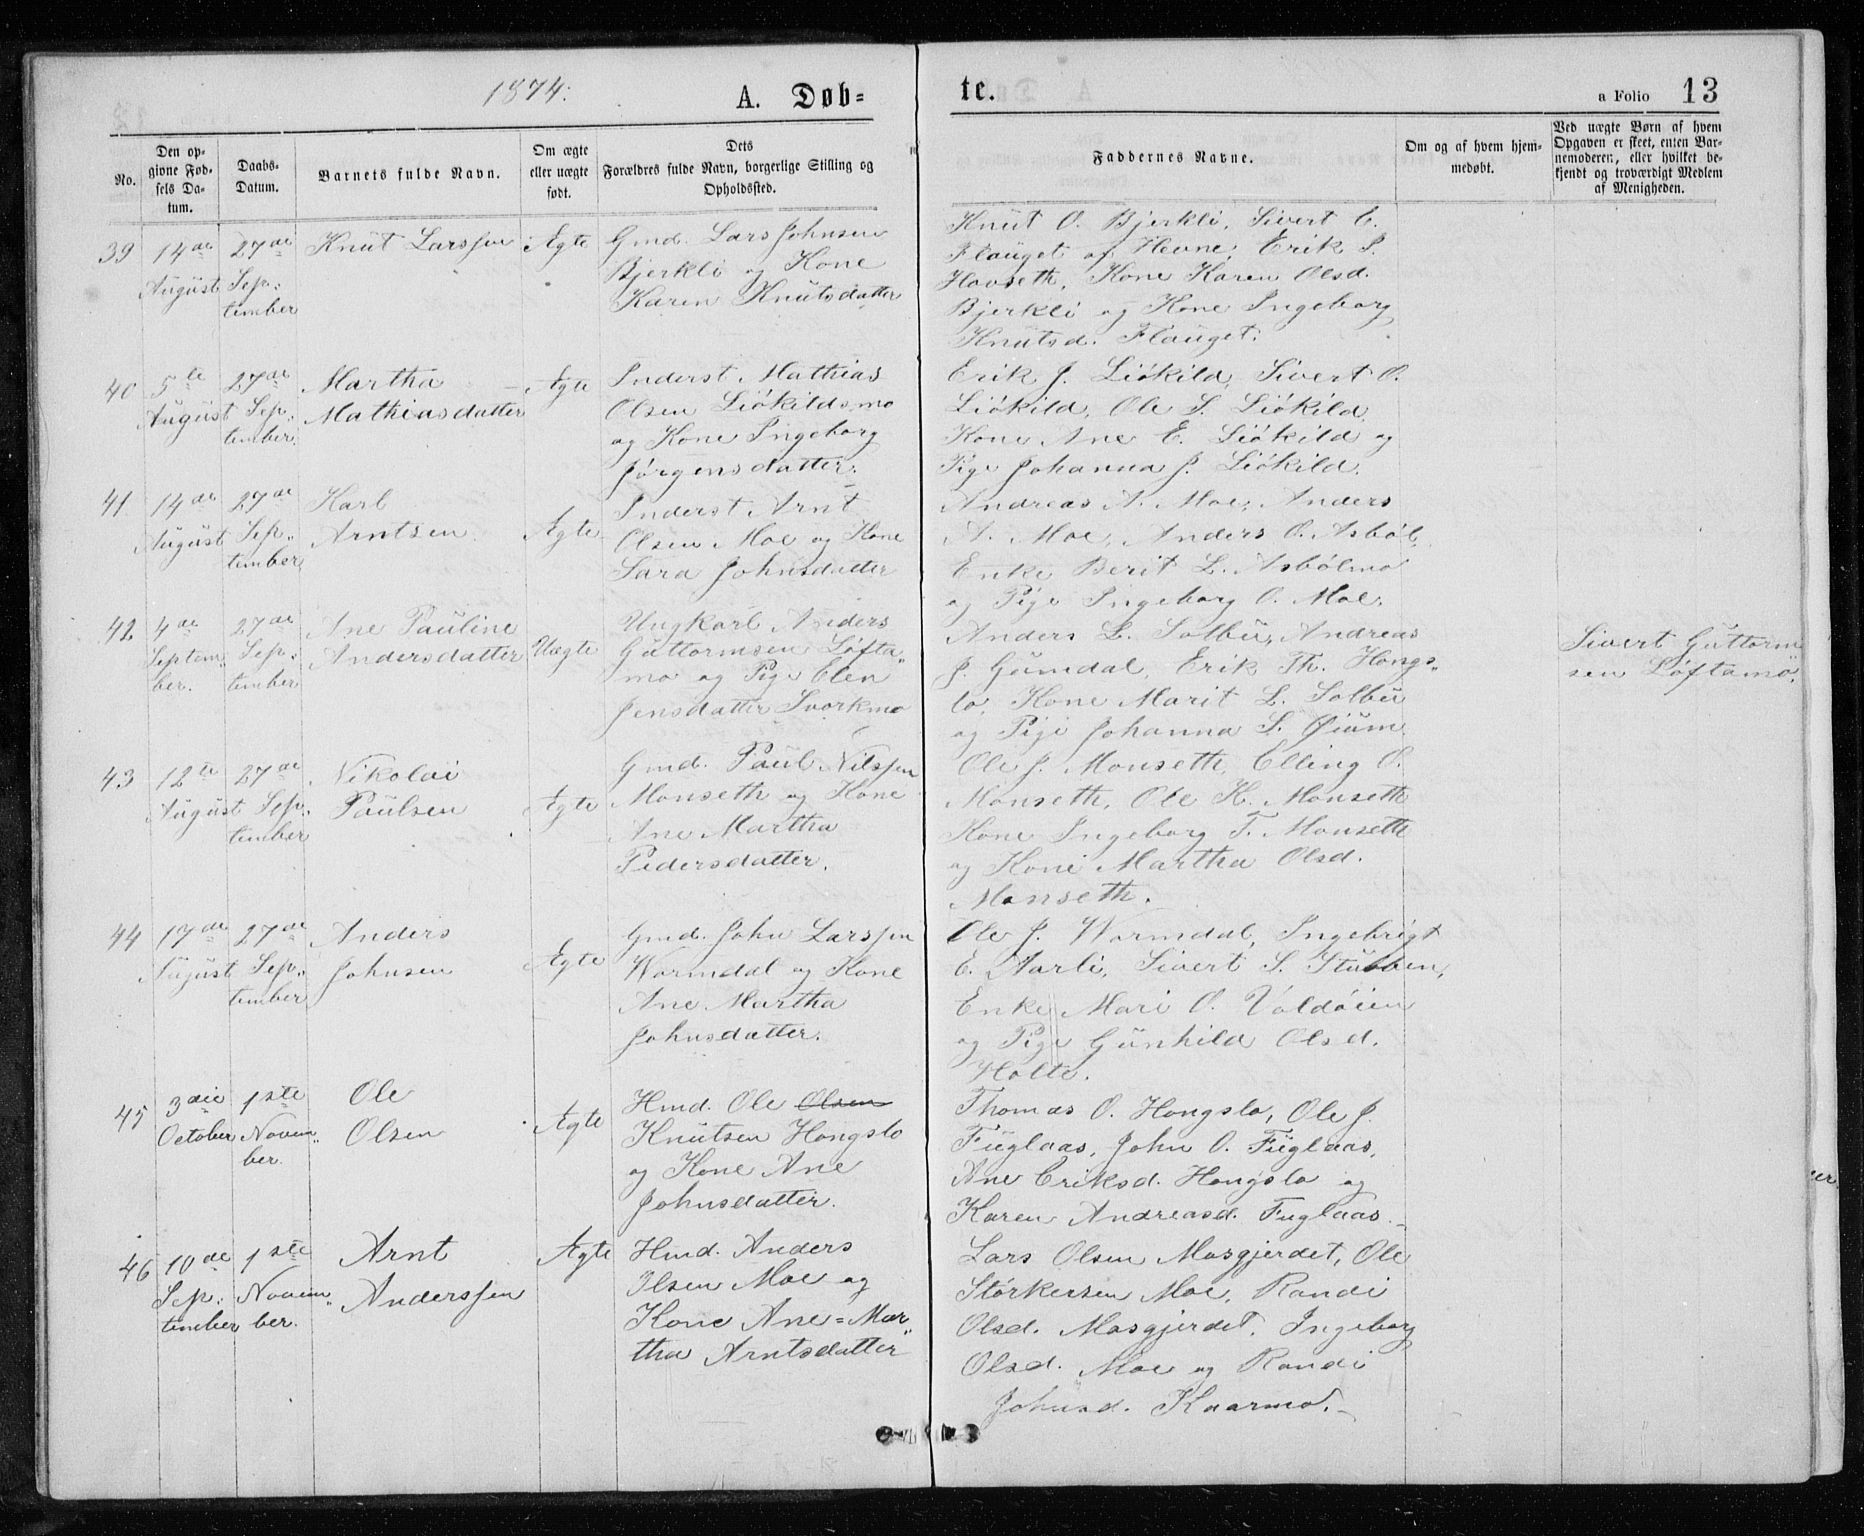 1874.
A. Døb=
te.
a Folio 13
No.
Den op-
givne Fød-
sels Da-
tum.
Daabs-
Datum.
Barnets fulde Navn.
Om ægte
eller uægte
født.
Dets
Forældres fulde Navn, borgerlige Stilling og
Opholdssted.
Faddernes Navne.
Om og af hvem hjem-
medøbt.
Ved uægte Børn af hvem
Opgaven er skeet, enten Bar-
nemoderen, eller hvilket be-
kjendt og troværdigt Medlem
af Menigheden.
39
14de
August
27de
Sep-
tember
Knut Larssen
Ægte
Gmd. Lars Johnsen
Bjerkli og Kone
Karen Knutsdatter
Knut O. Bjerkli, Sivert E.
Flauget af Hevne, Erik S.
Hovseth, Kone Karen Olsd.
Bjerkli og Kone Ingeborg
Knutsd. Flauget.
40
5te
August
27de
Sep-
tember
Martha
Mathiasdatter
Ægte
Inderst Mathias
Olsen Liökildsmo
og Kone Ingeborg
Jörgensdatter.
Erik J. Liökild, Sivert O.
Liökild, Ole S. Liökild,
Kone Ane E. Liökild og
Pige Johanna J. Liökild.
41
14de
August
27de
Sep-
tember
Karl
Arntsen
Ægte
Inderst Arnt
Olsen Moe og Kone
Sara Johnsdatter
Andreas A. Moe, Anders
A. Moe, Anders O. Asböl,
Enke Berit L. Asbölmo
og Pige Ingeborg O. Moe.
42
4de
Septem-
ber.
27de
Sep-
tember
Ane Pauline
Andersdatter
Uægte
Ungkarl Anders
Guttormsen Löfta-
mo og Pige Elen
Jensdatter Svorkmo
Anders L. Solbu, Andreas
J. Gumdal, Erik Th. Hongs-
lo, Kone Marit L. Solbu
og Pige Johanna S. Øium
Sivert Guttorm-
sen Löftamo.
43
12te
August
27de
Sep-
tember
Nikolai
Paulsen
Ægte
Gmd. Paul Nilssen
Monseth og Kone
Ane Martha
Pedersdatter.
Ole J. Monseth, Elling O.
Monseth, Ole K. Monseth
Kone Ingeborg T. Monseth
og Kone Martha Olsd.
Monseth.
44
17de
August
27de
Sep-
tember
Anders
Johnsen
Ægte
Gmd. John Larssen
Wormdal og Kone
Ane Martha
Johnsdatter.
Ole J. Wormdal, Ingebrigt
E. Aarli, Sivert S. Stubben,
Enke Mari O. Voldöien
og Pige Gunhild Olsd.
Holte.
45
3die
October
1ste
Novem-
ber.
Ole
Olsen
Ægte
Hmd. Ole Olsen
Knutsen Hongslo
og Kone Ane
Johnsdatter.
Thomas O. Hongslo, Ole J.
Fuglaas, John O. Fuglaas,
Ane Eriksd. Hongslo og
Karen Andreasd. Fuglaas.
46
10de
Sep-
tember
1ste
Novem-
ber.
Arnt
Anderssen
Ægte
Hmd. Anders
Olsen Moe og
Kone Ane=Mar-
tha Arntsdatter
Lars Olsen Mosgjerdet, Ole
Störkersen Moe, Randi
Olsd. Mosgjerdet, Ingeborg
Olsd. Moe og Randi
Johnsd. Kaarmo.